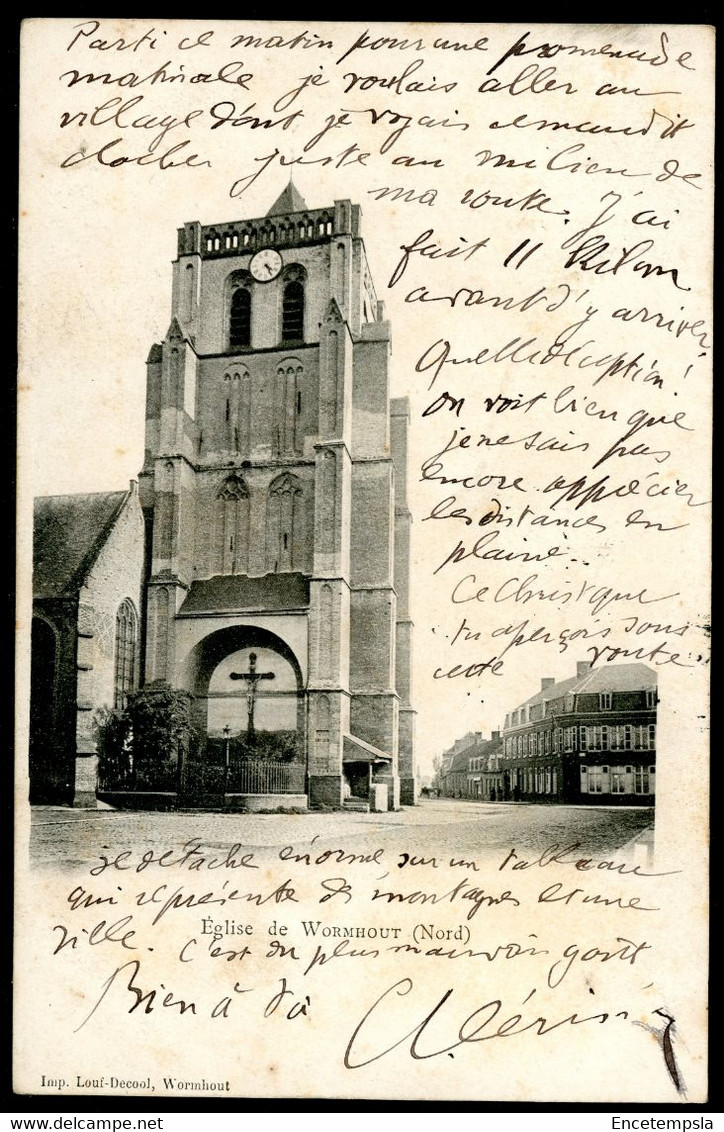 Parti ce matin pour une promenade
matinale je voulais aller au
village dont je voyais
clocher juste au milieu de
ma route. J'ai
fait 11 Kilom
avant d'y arriver
Quelle déception!
On voit bien que
je ne sais pas
encore apprécier
les distances en
plaine..
Ce Christ que
tu aperçois sous
cette voute
se détache énorme sur un tableau
qui représente des montagnes et une
ville. C'est du plus mauvais goût
Église de WORMHOUT (Nord)
Bien à toi
Imp. Louf-Decool, Wormhout
Encetempsla